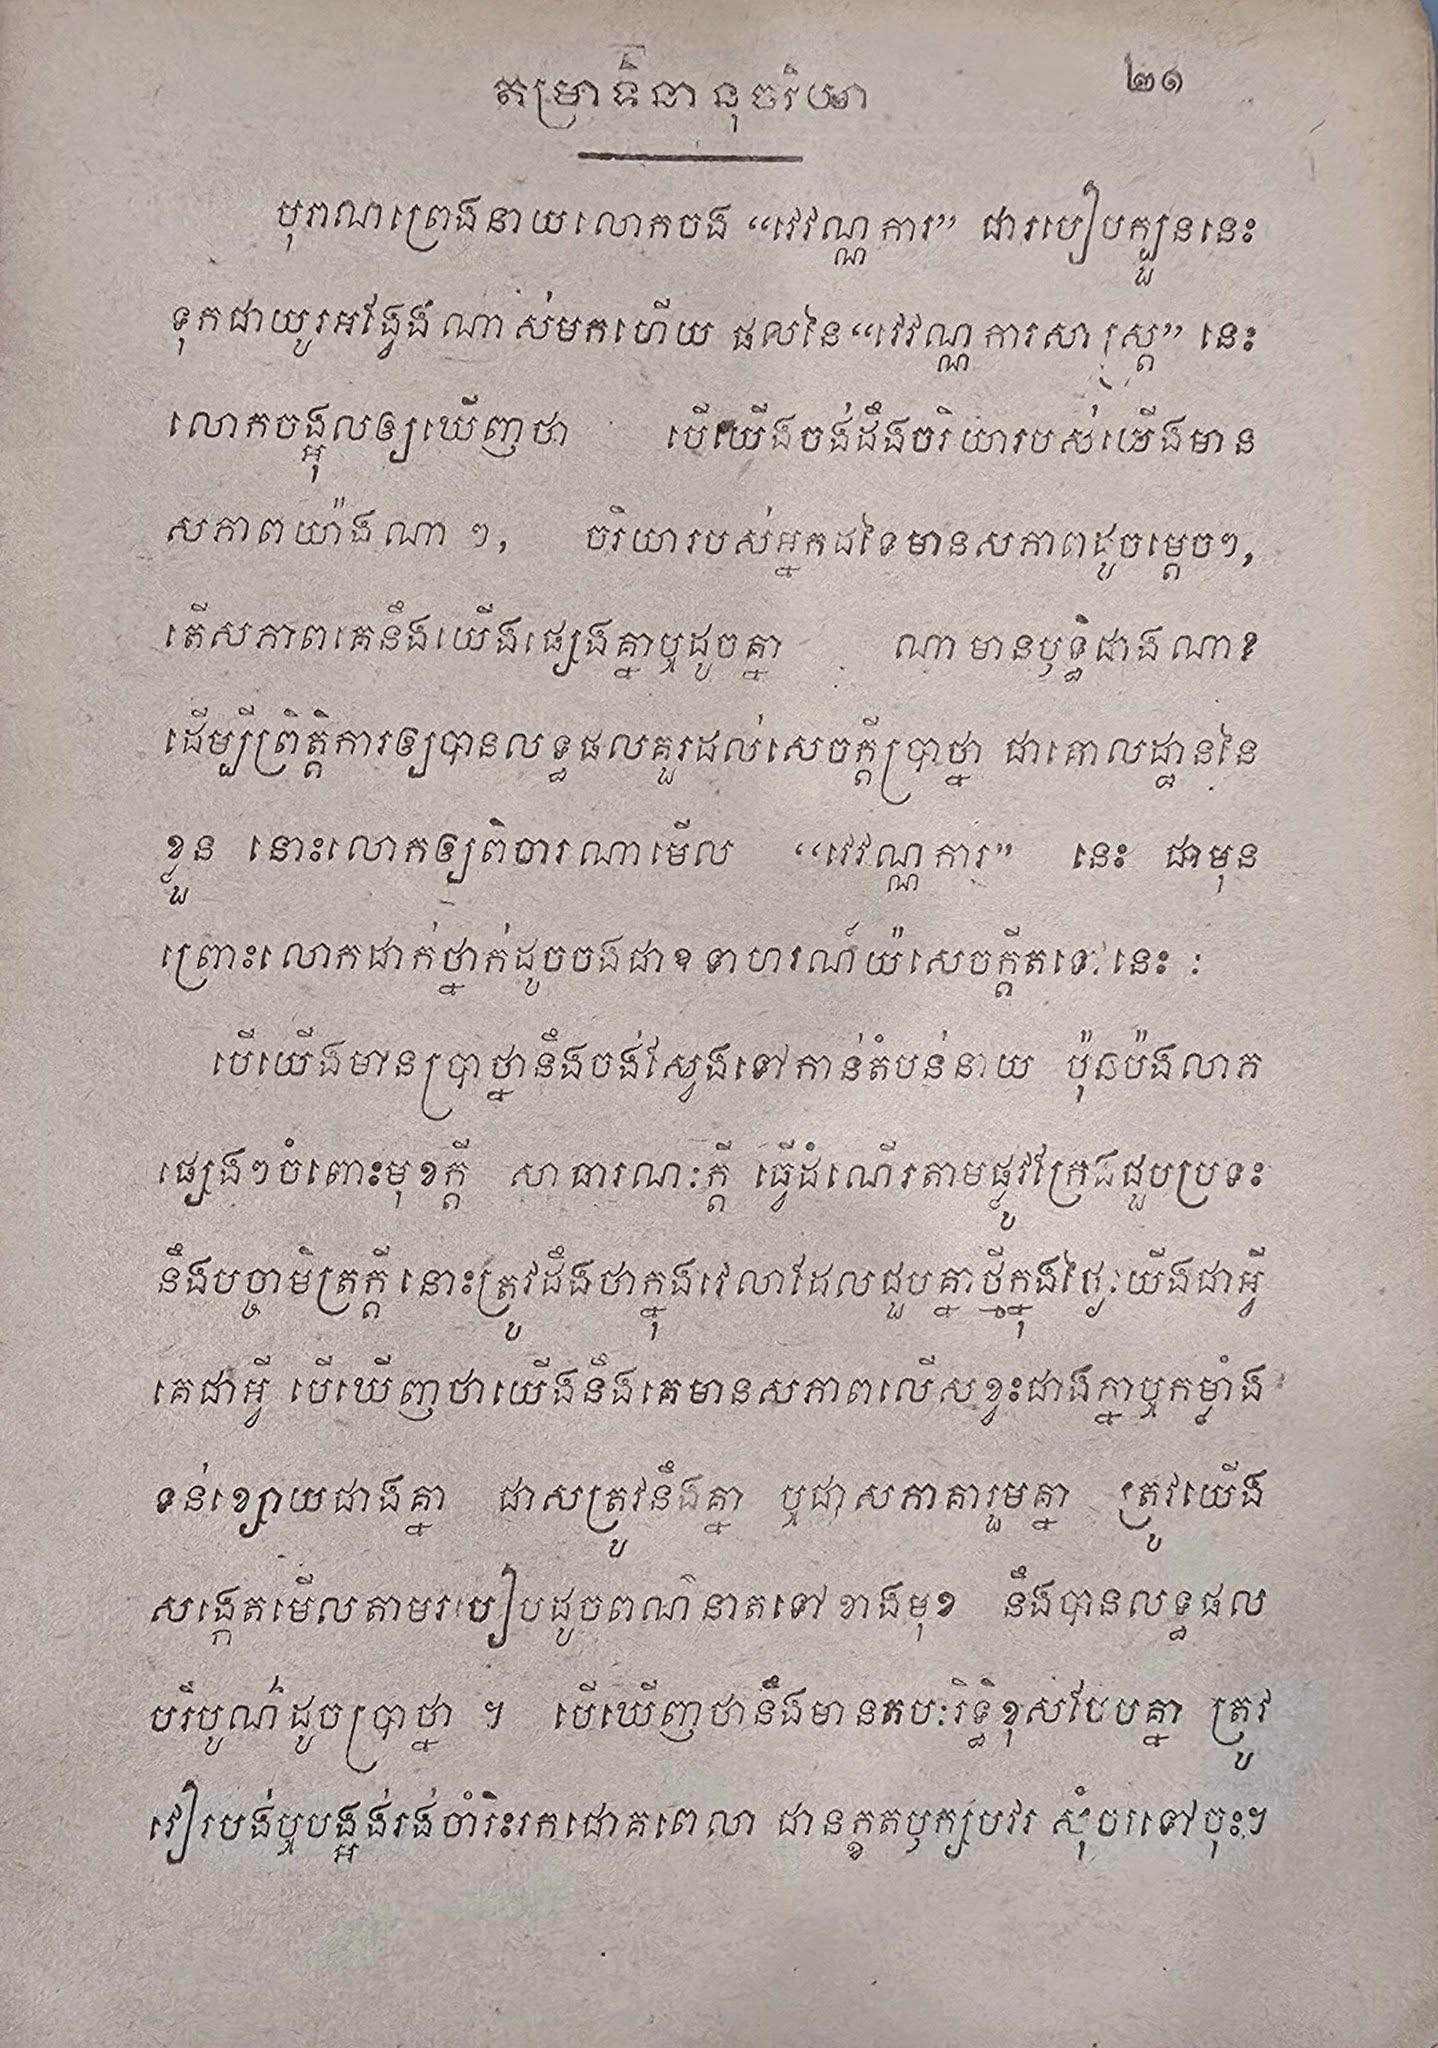 តម្រាទិនានុចរិយា ២១
បុរាណព្រេងនាយលោកចង “វេវណ្ណការ” ជារបៀបក្បួននេះ
ទុកជាយូរអង្វែងណាស់មកហើយ ផលនៃ“វេវណ្ណការសាស្ត្រ” នេះ
លោកចង្អុលឲ្យឃើញថា បើយើងចង់ដឹងចរិយារបស់យើងមាន
សភាពយ៉ាងណា ៗ, ចរិយារបស់អ្នកដទៃមានសភាពដូចម្ដេចៗ,
តើសភាពគេនឹងយើងផ្សេងគ្នាឬដូចគ្នា ណាមានឫទ្ធិជាងណា?
ដើម្បីព្រឹត្តិការឲ្យបានលទ្ធផលគួរដល់សេចក្ដីប្រាថ្នា ជាគោលដ្ឋាននៃ
ខ្លួន នោះលោកឲ្យពិចារណាមើល “វេវណ្ណការ” នេះ ជាមុន
ព្រោះលោកដាក់ថ្នាក់ដូចចងជាឧទាហរណ៍យ៉សេចក្ដីតទៅនេះ :
បើយើងមានប្រាថ្នានឹងចង់ស្វែងទៅកាន់តំបន់នាយ ប៉ុនប៉ងលាភ
ផ្សេងៗចំពោះមុខក្ដី សាធារណៈក្ដី ធ្វើដំណើរតាមផ្លូវក្រែងជួបប្រទះ
នឹងបច្ចាមិត្រក្ដី នោះត្រូវដឹងថាក្នុងវេលាដែលជួបគ្នាថ្មីក្នុងថ្ងៃយើងជាអ្វី
គេជាអ្វី បើឃើញថាយើងនឹងគេមានសភាពលើសខ្វះជាងគ្នាឬកម្លាំង
ទន់ខ្សោយជាងគ្នា ជាសត្រូវនឹងគ្នា ឬជាសភាគារួមគ្នា ត្រូវយើង
សង្កេតមើលតាមរបៀបដូចពណ៌នាតទៅខាងមុខ នឹងបានលទ្ធផល
បរិបូណ៌ដូចប្រាថ្នា ។ បើឃើញថានឹងមានតបៈរិទ្ធិខុសបែបគ្នា ត្រូវ
វៀរបង់ឬបង្អង់រង់ចាំរិះរកជោគពេលា ជានក្ខតឫក្សបវរ សុំចរទៅចុះ។